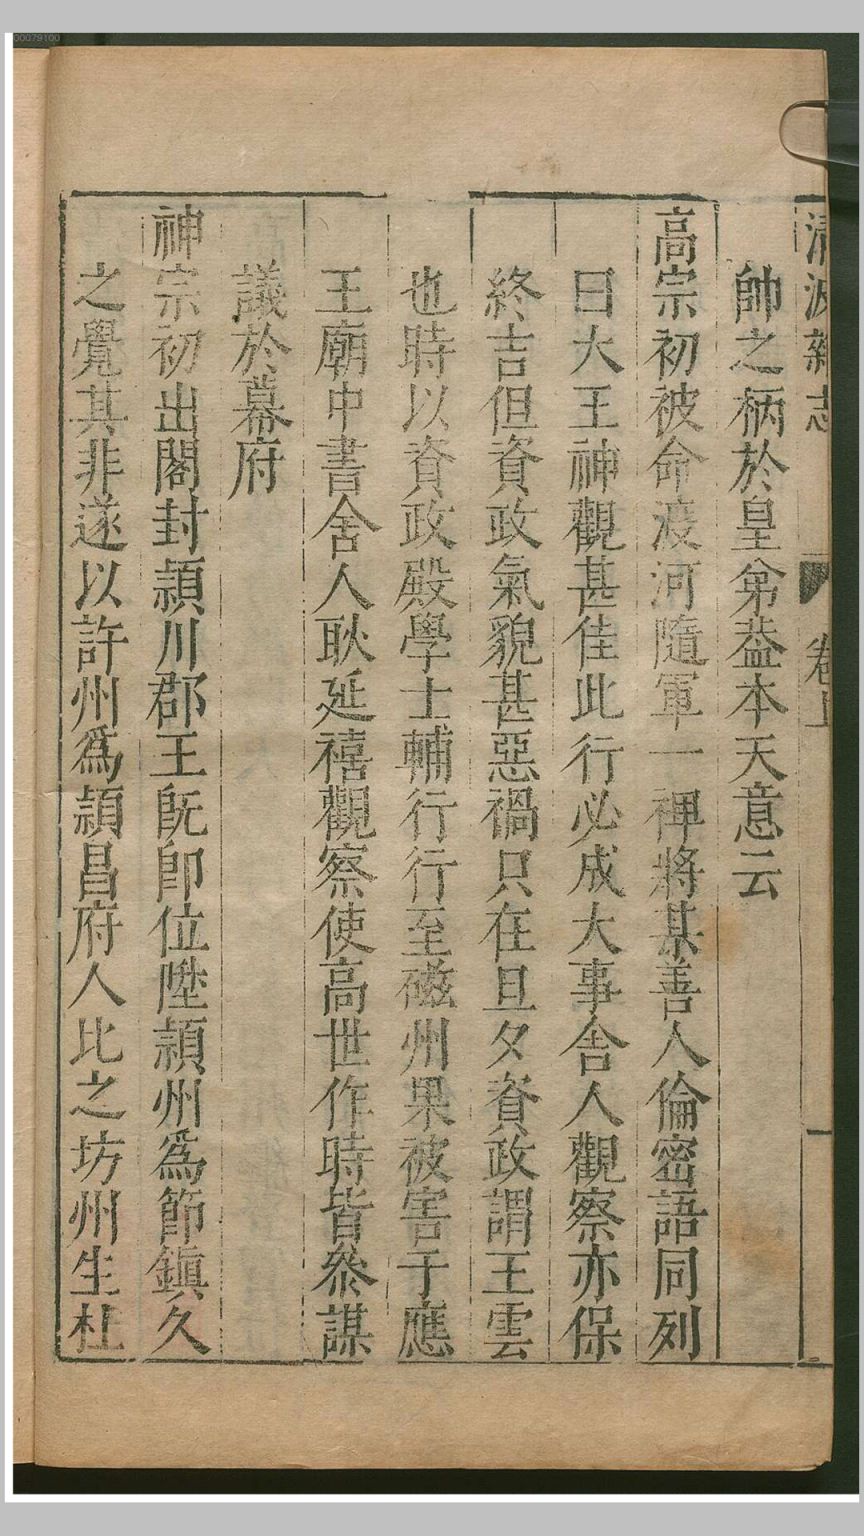 清波雜志 卷上
帥之柄於皇弟葢本天意云
高宗初被命渡河隨軍一裨將某善人倫密語同列
曰大王神觀甚佳此行必成大事舎人觀察亦保
終吉但資政氣貌甚惡禍只在旦夕資政謂王雲
也時以資政殿學士輔行行至磁州果被害于應
王廟中書舎人耿延禧觀察使高世作時皆叅謀
議於幕府
神宗初出閣封頴川郡王旣卽位陞頴州爲節鎭久
之覺其非遂以許州爲頴昌府人比之坊州生杜
00079100